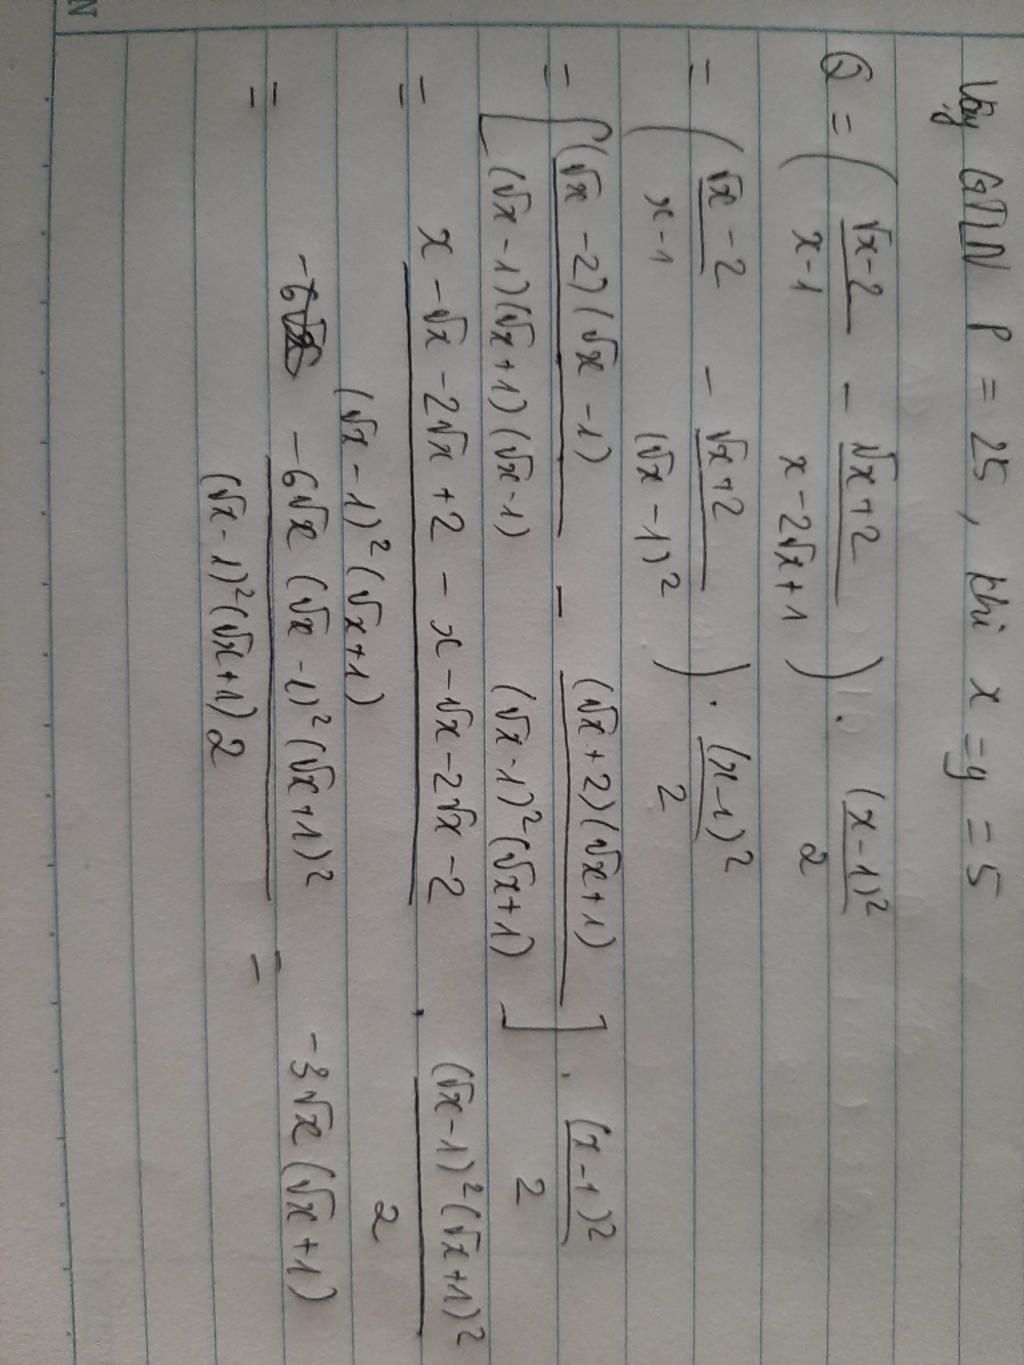 Vậy GTLN P = 25, khi x = y = 5
Q = ( (√x - 2)/(x - 1) - (√x + 2)/(x - 2√x + 1) ) . (x - 1)²/2
= ( (√x - 2)/(x - 1) - (√x + 2)/(√x - 1)² ) . (x - 1)²/2
= [ (√x - 2)(√x - 1)/(√x - 1)(√x + 1)(√x - 1) - (√x + 2)(√x + 1)/(√x - 1)²(√x + 1) ] . (x - 1)²/2
= (x - √x - 2√x + 2 - x - √x - 2√x - 2)/(√x - 1)²(√x + 1) . (√x - 1)²(√x + 1)²/2
= -6√x(√x - 1)²(√x + 1)²/(√x - 1)²(√x + 1)2 = -3√x(√x + 1)
N